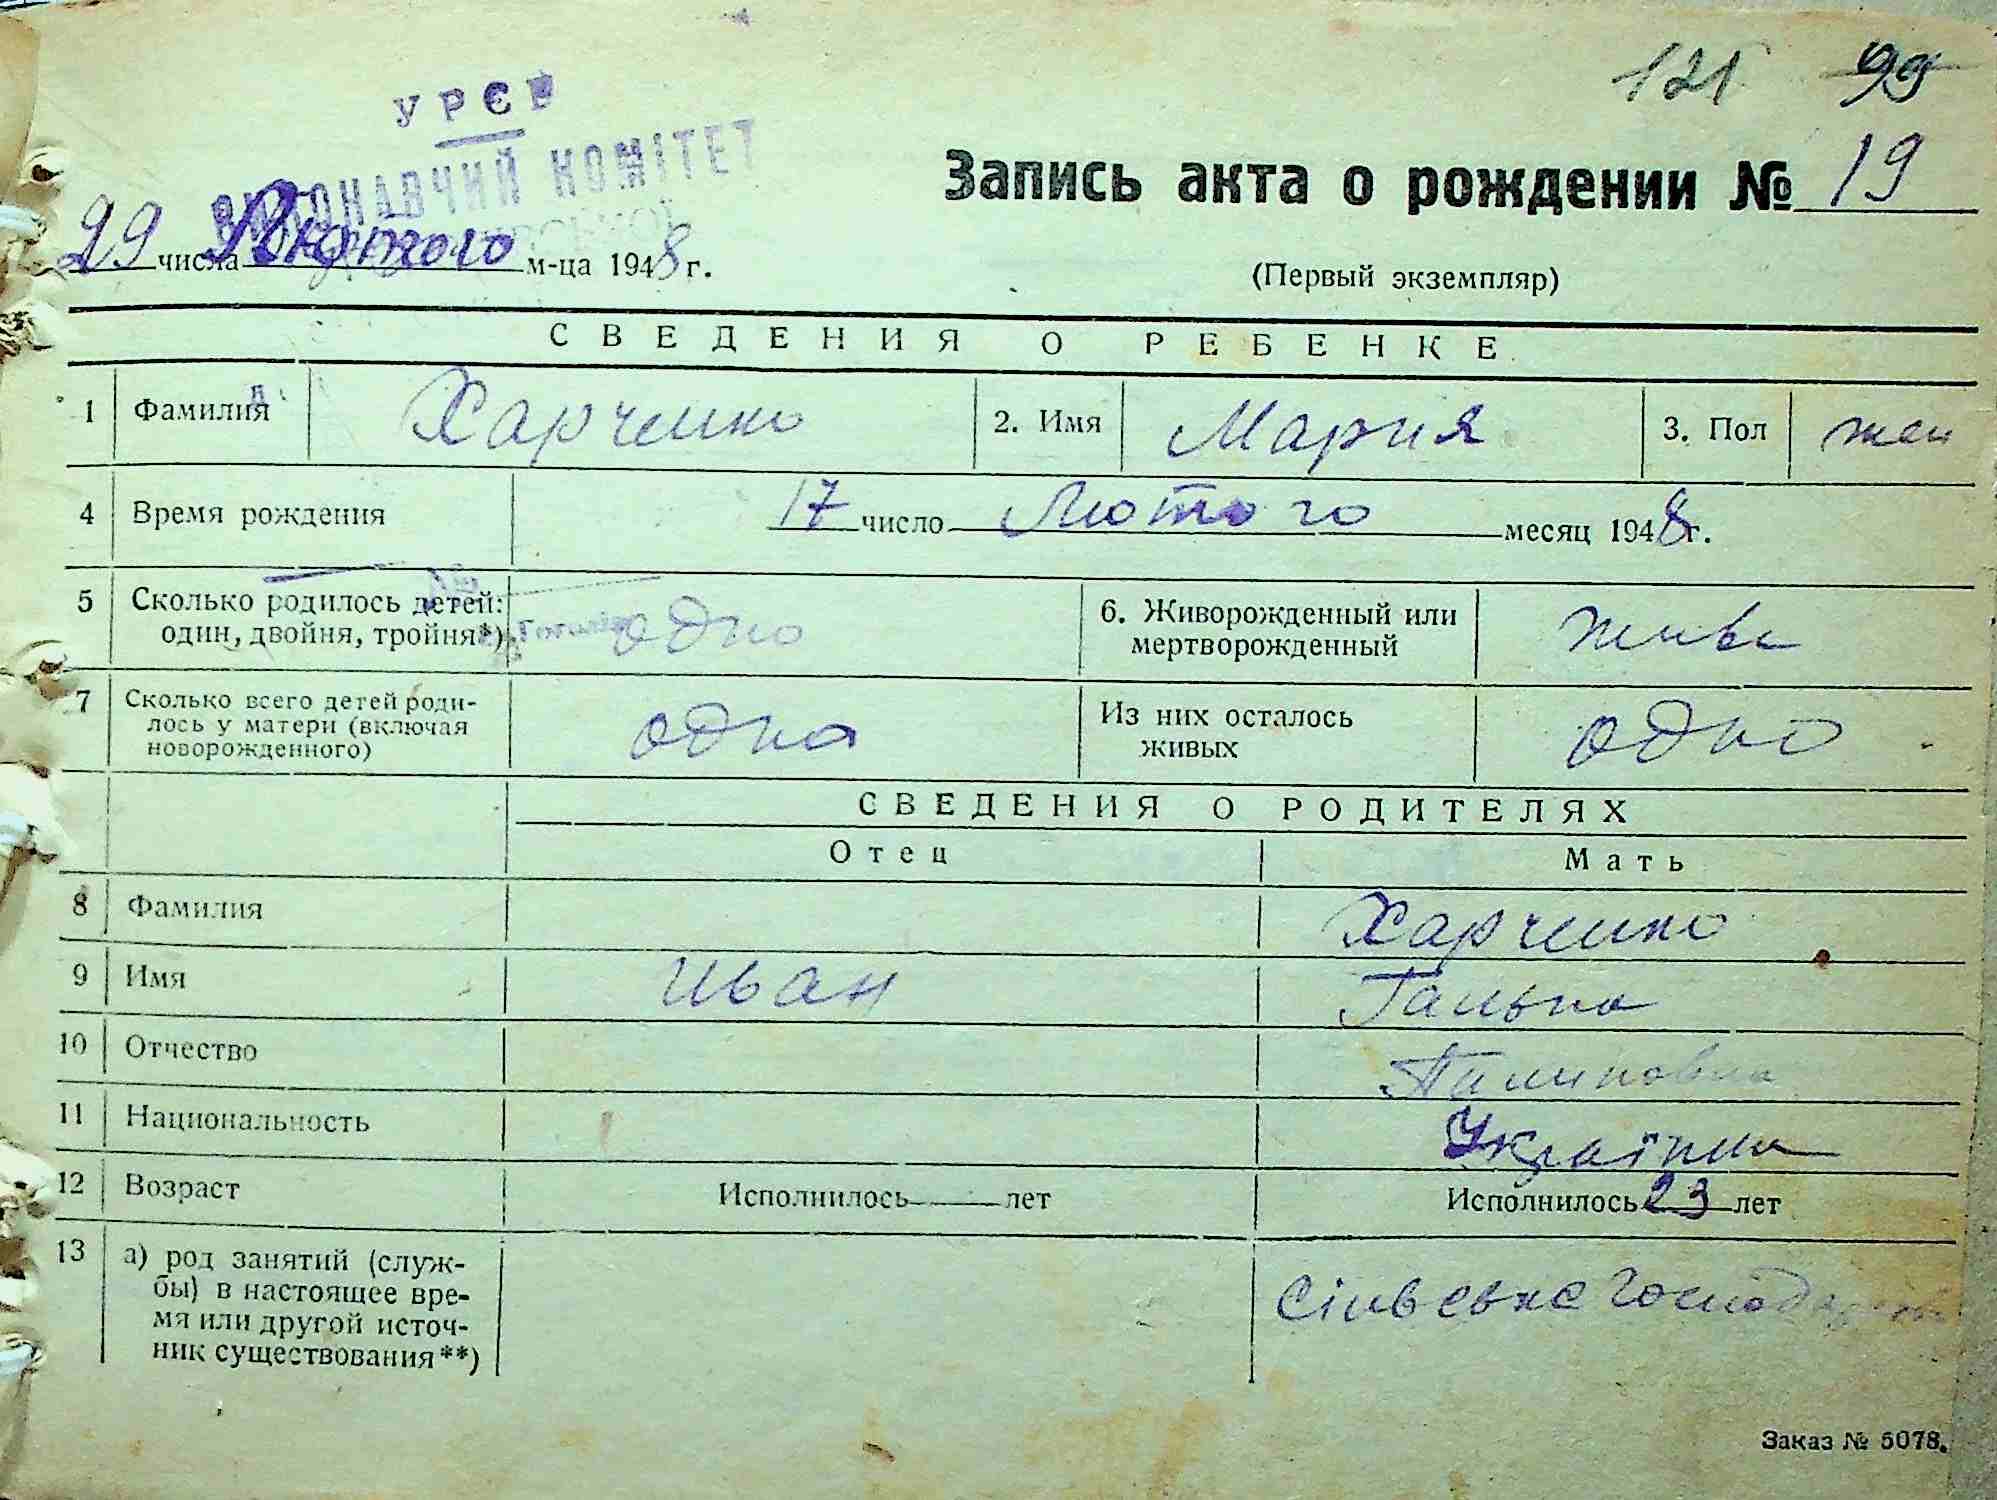 121 99
УРСР
ВИКОНАВЧИЙ КОМІТЕТ
Запись акта о рождении № 19
29 числа Лютого м-ца 1948 г.
(Первый экземпляр)
СВЕДЕНИЯ О РЕБЕНКЕ
1 Фамилия Харченко 2. Имя Мария 3. Пол жен
4 Время рождения 17 число Лютого месяц 1948 г.
5 Сколько родилось детей: один, двойня, тройня*) одно 6. Живорожденный или мертворожденный живе
7 Сколько всего детей родилось у матери (включая новорожденного) одна Из них осталось живых одно
СВЕДЕНИЯ О РОДИТЕЛЯХ
Отец Мать
8 Фамилия Харченко
9 Имя Иван Галька
10 Отчество Пилиповна
11 Национальность Українка
12 Возраст Исполнилось — лет Исполнилось 23 лет
13 а) род занятий (служ-
бы) в настоящее вре-
мя или другой источ-
ник существования**)
Сільське
Заказ № 5078.